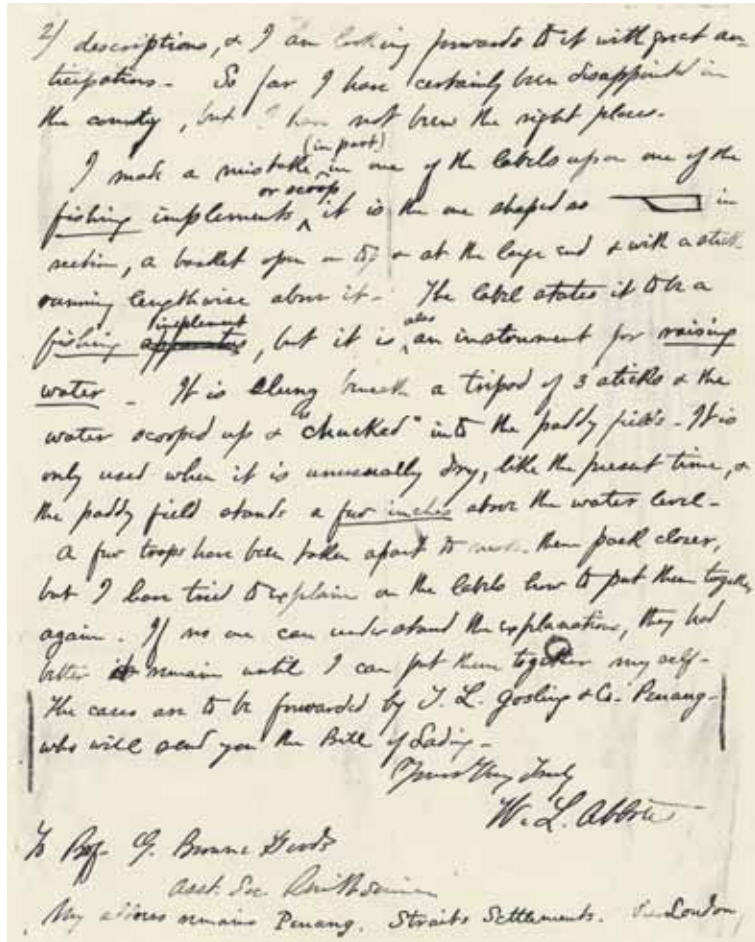 2/ descriptions, & I am looking forwards to it with great an-
ticipations - So far I have certainly been disappointed in
the country, but I have not been the right places.
(in part)
I made a mistake in one of the labels upon one of the
or scoop
fishing implements, it is the one shaped as in
section, a basket open on top & at the large end & with a stick
running lengthwise above it - The label states it to be a
implement also
fishing apparatus, but it is an instrument for raising
water - It is slung beneath a tripod of 3 sticks & the
water scooped up & "chucked" into the paddy fields - It is
only used when it is unusually dry, like the present time, &
the paddy field stands a few inches above the water level -
A few traps have been taken apart to make them pack closer,
but I have tried to explain on the labels how to put them together
again. If no one can understand the explanations, they had
better remain until I can put them together my self -
The cases are to be forwarded by T. L. Gosling & Co. Penang -
who will send you the Bill of Lading -
Yours Very Truly
W. L. Abbott
To Prof. G. Browne Goode
Asst. Sec Smithsonian
My address remains Penang, Straits Settlements. via London